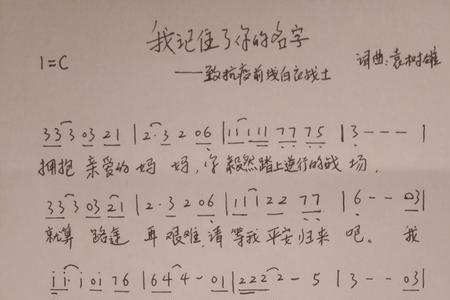 我记住了你的名字
1=C
——致抗疫前线白衣战士
词曲:袁树雄
3 3 3 0 3 2 1 | 2· 3 2 0 6 | 1 1 1 1 7 7 7 5 | 3 - - - |
拥抱 亲爱的 妈 妈,你 毅然踏上逆行的战 场.
3 3 3 0 3 2 1 | 2· 3 2 0 6 | 1 1 1 2 2 7 7 | 6 - - 0 3 |
就算 路途 再 艰难.请 等我 平安 归来 吧。 我
i i· i 0 i 7 6 | 6 4 4 - 0 1 | 2 2 2 2 - 5 | 3 - - 0 3 |